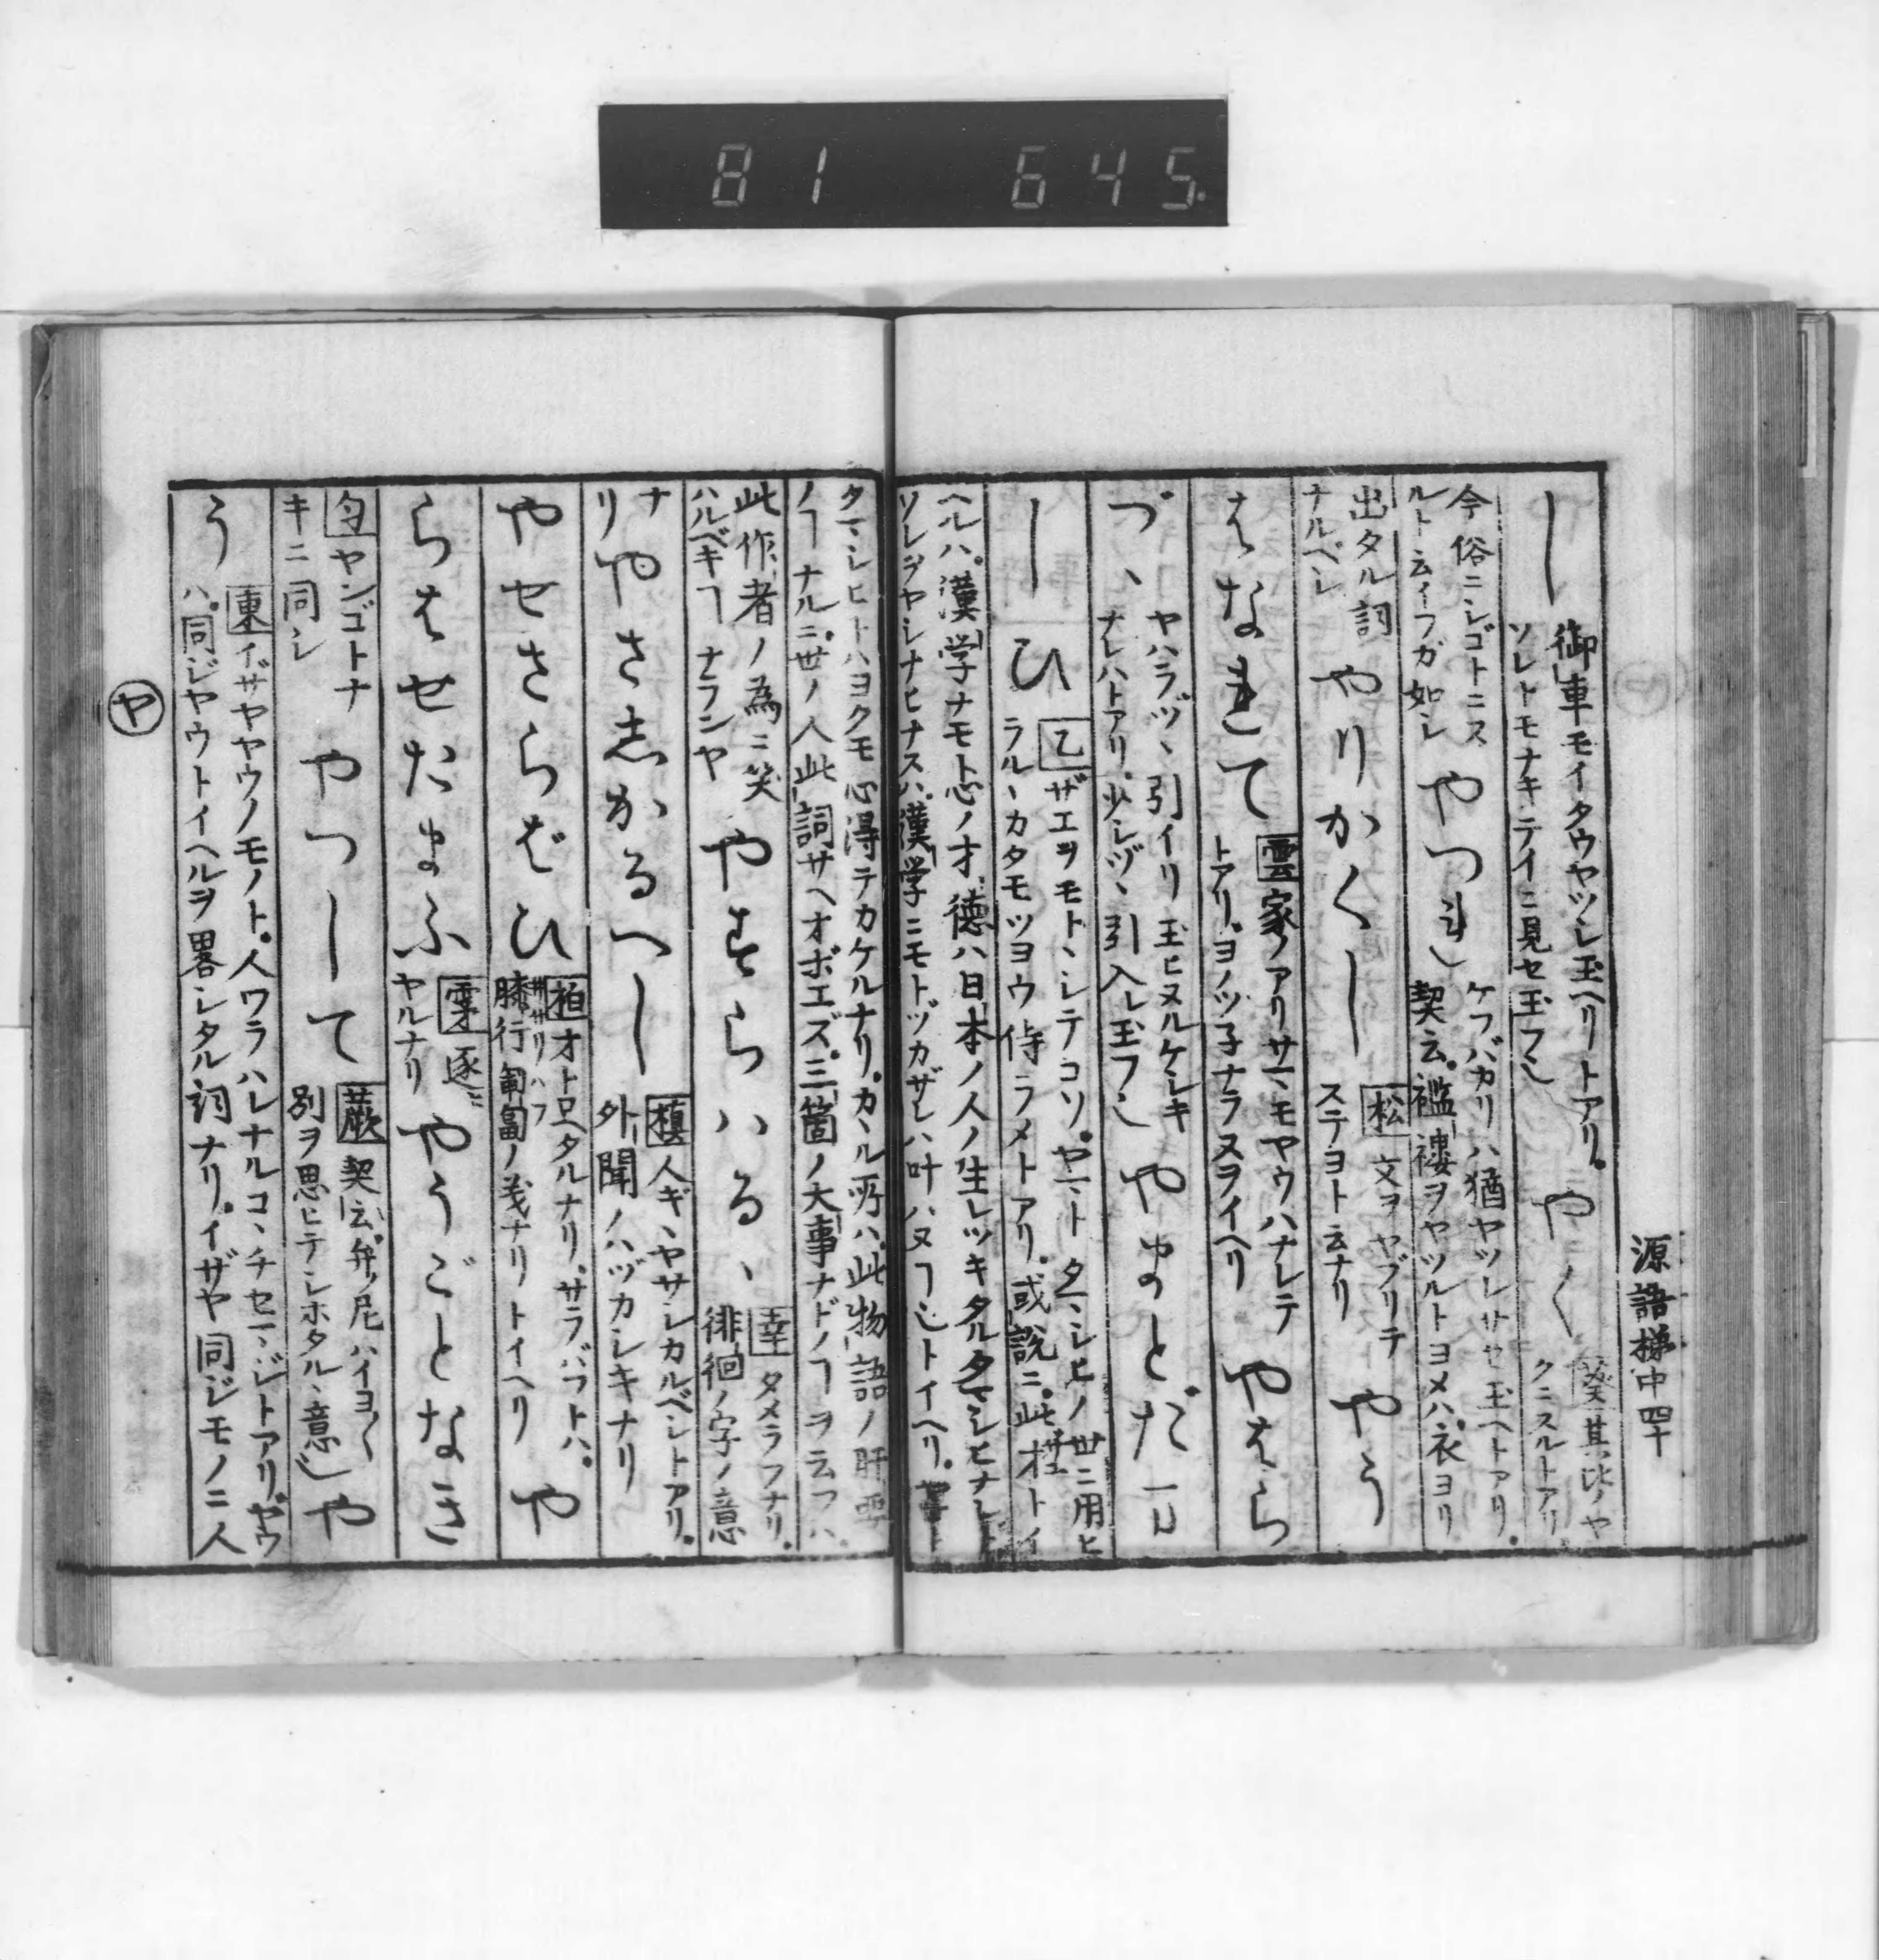 81 645.
源語梯中 四十
し 御車モイタウヤツレ玉ヘリトアリ。
ソレトモナキテイニ見セ玉フ也
やく 葵 其比ノヤ
クニスルトアリ
今俗ニシゴトニス
ルト云イフガ如シ
やつれ ケフバカリハ猶ヤツレサセ玉ヘトアリ。
契云。襤褸ヲヤツルトヨメハ、衣ヨリ
出タル詞
ナルベシ
やりかくし 松 文ヲヤブリテ
ステヨト云ナリ
やう
はなれて 雲 家ノアリサマモヤウハナレテ
トアリ。ヨノツ子ナラヌヲイヘリ
やはら
づゝ ヤハラヅヽ引イリ玉ヒヌルケシキ
ナレハトアリ。少シヅヽ引入レ玉フ也
やまとだま
しひ 乙 ザエヲモトヽシテコソ。ヤマトタマシヒノ世ニ用ヒ
ラルヽカタモツヨウ侍ラメトアリ。或説ニ。此オトイ
ヘルハ。漢学ナモト心ノオ。徳ハ日本ノ人ノ生レツキタルタマシヒナレド
ソレヲヤシナヒナスハ。漢学ニモトヅカザレハ叶ハヌヿ也トイヘリ。
タマシヒトハヨクモ心得テカケルナリ。カヽル所ハ。此物語ノ肝要
ノヿナルニ。世ノ人此詞サヘオボエズ。三箇ノ大事ナドノヿヲ云フハ。
此作者ノ為ニ笑
ハルベキヿナランヤ
やすらハるゝ 幸 タメラフナリ。
徘徊ノ字ノ意
ナ
リ
やさしかるへし 槙 人ギヽヤサシカルベシトアリ。
外聞ノハヅカシキナリ
やせさらぼひ 柏 オトロヘタルナリ。サラバフトハ。
膝行匍匐ノ義ナリトイヘリ
や
らはせたまふ 雲 逐ニ
ヤルナリ
やうごとなき
匂 ヤンゴトナ
キニ同シ
やつして 蕨 契云。弁ノ尼ハイヨ〱
別ヲ思ヒテシホタルヽ意
や
う 東 イザヤヤウノモノト。人ワラハレナルコヽチセマジトアリ。ヤウ
ハ。同ジヤウトイヘルヲ畧シタル詞ナリ。イザヤ同ジモノニ人
ヤ